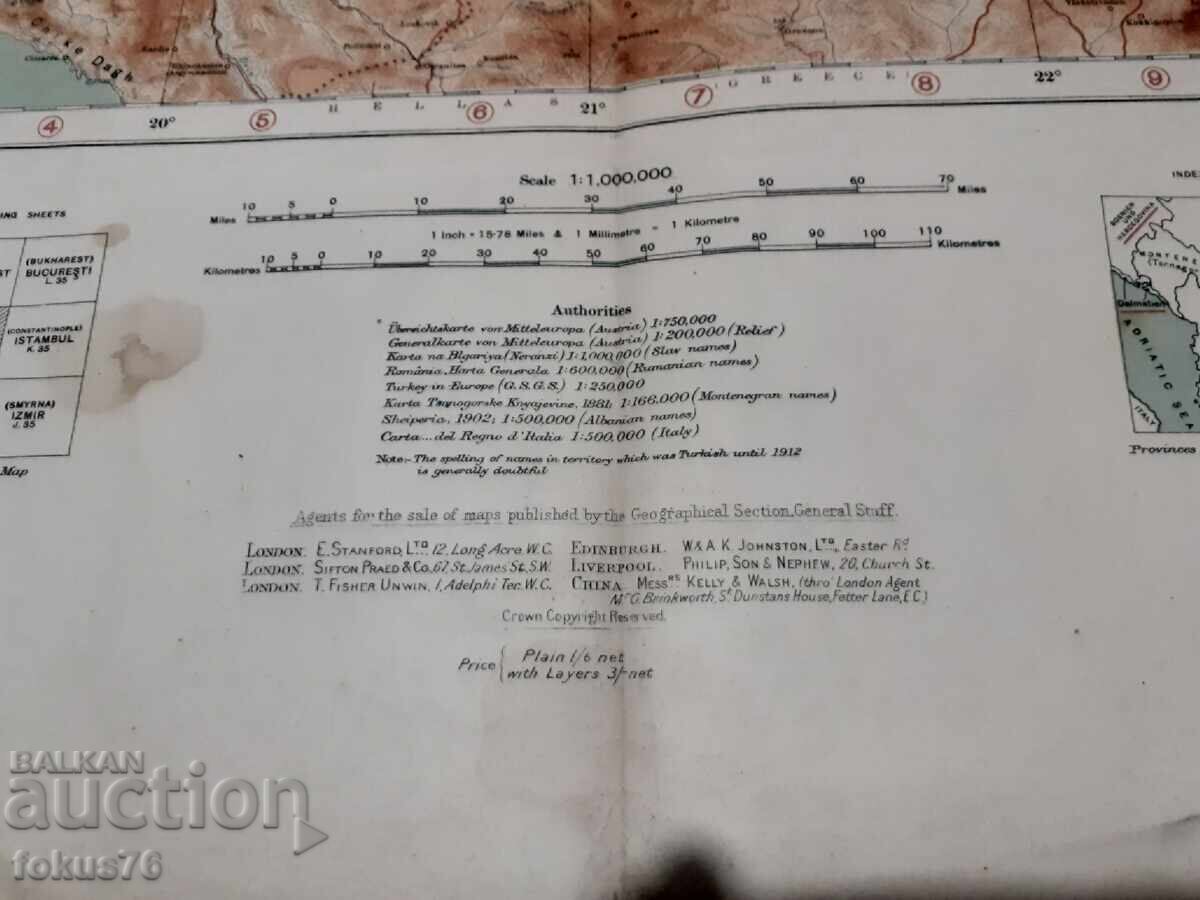 Chike Dagh
④ 20° ⑤ HELLAS ⑥ 21° ⑦ GREECE ⑧ 22° ⑨
Scale 1:1,000,000
Miles 10 5 0 10 20 30 40 50 60 70 Miles
1 Inch = 15·78 Miles & 1 Millimetre = 1 Kilometre
Kilometres 10 5 0 10 20 30 40 50 60 70 80 90 100 110 Kilometres
ING SHEETS
(BUKHAREST)
BUCUREŞTI
L.35
(CONSTANTINOPLE)
ISTAMBUL
K.35
(SMYRNA)
IZMIR
J.35
Map
Authorities
Übereichtskarte von Mitteleuropa (Austria) 1:750,000
Generalkarte von Mitteleuropa (Austria) 1:200,000 (Relief)
Karta na Blgariya (Neranzi) 1:1,000,000 (Slav names)
România, Harta Generala 1:600,000 (Rumanian names)
Turkey in Europe (G.S.G.S.) 1:250,000
Karta Tsrnogorske Knyajevine, 1881; 1:166,000 (Montenegran names)
Shqiperia, 1902; 1:500,000 (Albanian names)
Carta... del Regno d'Italia 1:500,000 (Italy)
Note:- The spelling of names in territory which was Turkish until 1912
is generally doubtful
Agents for the sale of maps published by the Geographical Section, General Staff.
LONDON. E. STANFORD, LTD. 12, Long Acre, W.C. EDINBURGH. W. & A.K. JOHNSTON, LTD., Easter Rd.
LONDON. SIFTON PRAED & Co. 67, St. James St. S.W. LIVERPOOL. PHILIP, SON & NEPHEW, 20, Church St.
LONDON. T. FISHER UNWIN, 1, Adelphi Ter. W.C. CHINA. MESSRS KELLY & WALSH, (thro' London Agent
Mr G. Brinkworth, St Dunstans House, Fetter Lane, E.C.)
Crown Copyright Reserved.
Price { Plain 1/6 net
with Layers 3/- net
INDE
BOSNIEN
UND
HERZEGOVINA
MONTENE
Dalmatien
ADRIATIC SEA
ITALY
Provinces
BALKAN
auction
fokus76